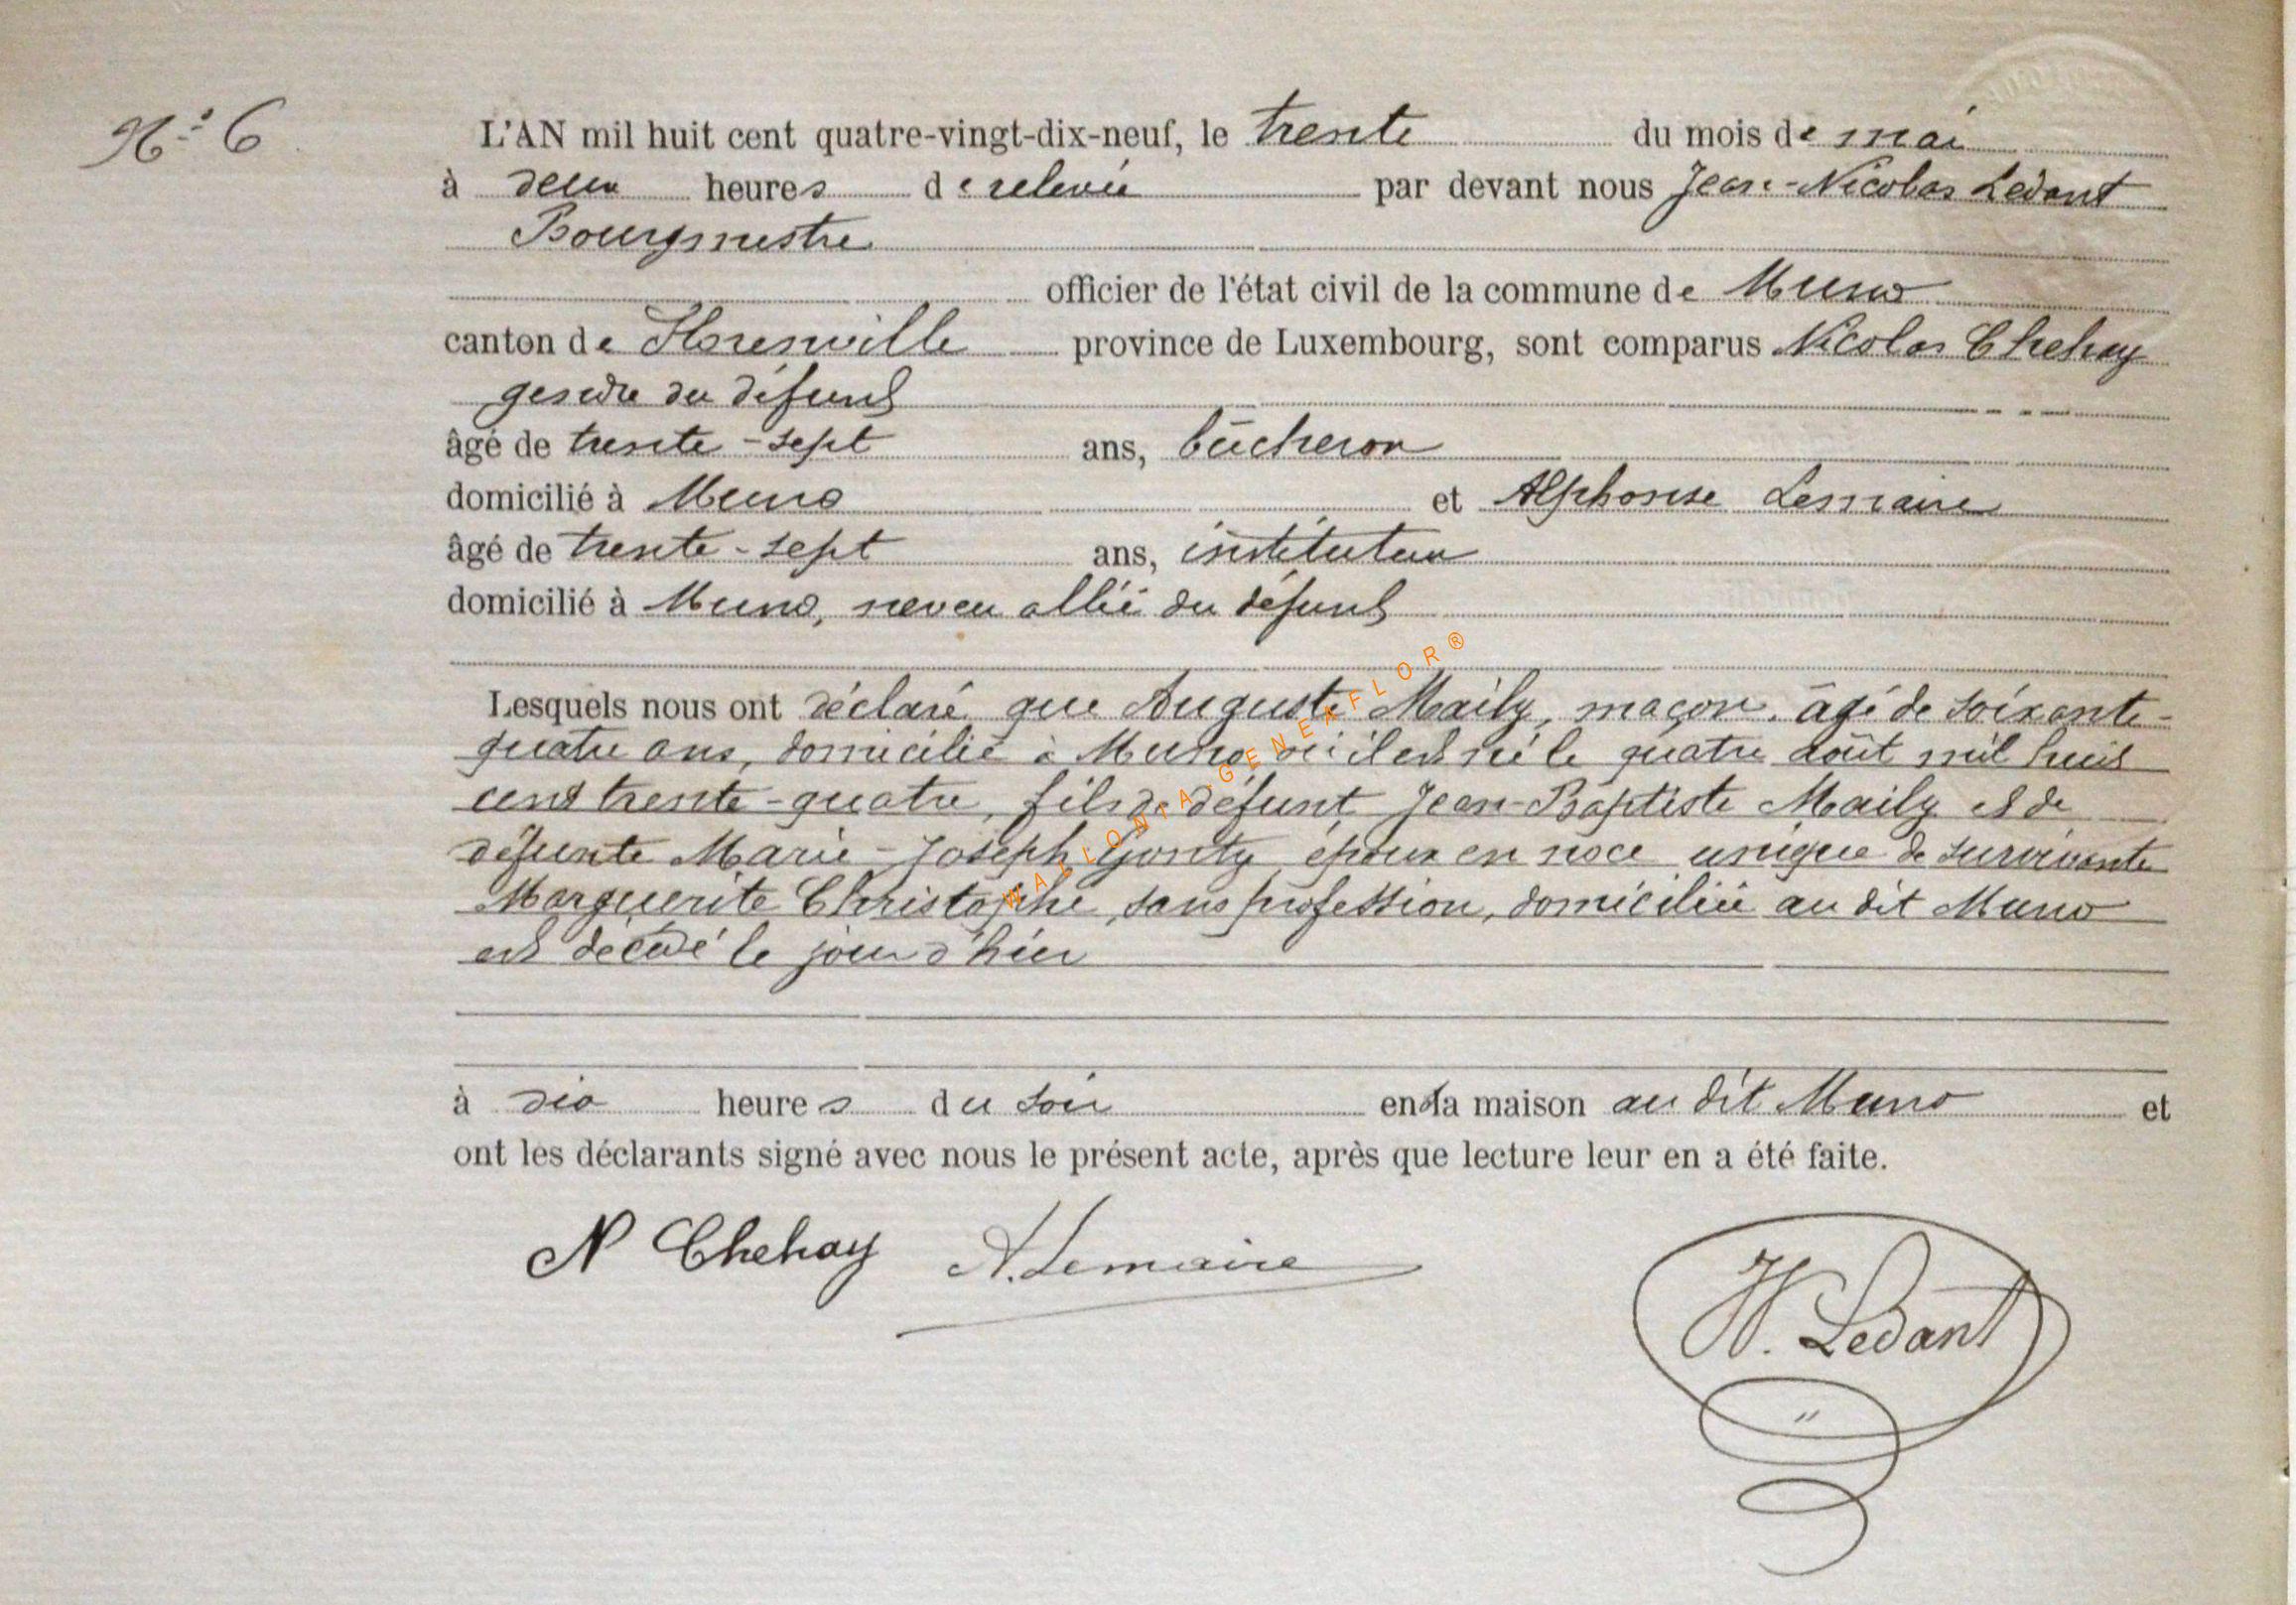 N° 6
L'AN mil huit cent quatre-vingt-dix-neuf, le trente du mois de mai
à deux heures de relevée par devant nous Jean-Nicolas Ledant
Bourgmestre
officier de l'état civil de la commune de Muno
canton de Florenville province de Luxembourg, sont comparus Nicolas Chehay
gendre du défunt
âgé de trente-sept ans, bûcheron
domicilié à Muno et Alphonse Lemaire
âgé de trente-sept ans, instituteur
domicilié à Muno, neveu allié du défunt
Lesquels nous ont déclaré que Auguste Maily, maçon, âgé de soixante-
quatre ans, domicilié à Muno où il est né le quatre août mil huit
cent trente-quatre, fils de défunt Jean-Baptiste Maily et de
défunte Marie-Joseph Gonty époux en noce unique de survivante
Marguerite Christophe, sans profession, domiciliée au dit Muno
est décédé le jour d'hier
à dix heures du soir en sa maison au dit Muno et
ont les déclarants signé avec nous le présent acte, après que lecture leur en a été faite.
N Chehay A. Lemaire
N. Ledant
WALLONIA-GENEAFLOR®